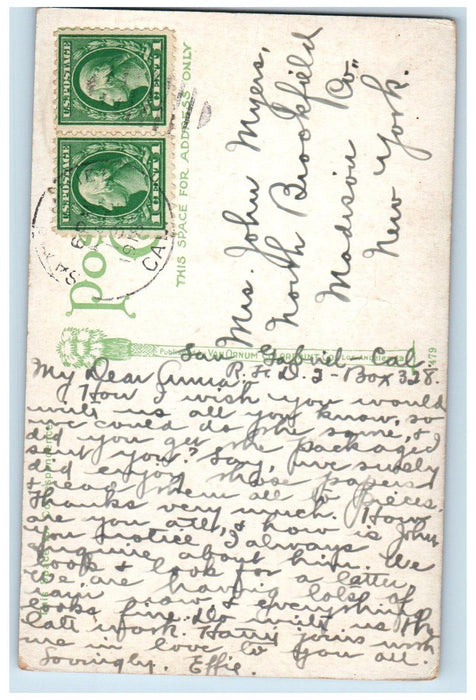 U.S. POSTAGE
1 CENT 1
U.S. POSTAGE
1 CENT 1
CAL
THIS SPACE FOR ADDRESS ONLY
Mrs. John Myers,
North Brookfield
Madison Co.,
New York.
Published by Van Ornum Colorprint Co., Los Angeles, Cal.
479
San Gabriel - Cal.
R. F. D. 2 - Box 328.
My Dear Anna:
How I wish you would
write us all you know, so
we could do the same, &
did you get the package I
sent you? Say, we surely
did enjoy those papers
& read them all to pieces.
Thanks very much. How
are you all, & how is John
I always
inquire about him. We
look & look for a letter,
we are having lots of
rain now & everything
looks fine. Do write us
Harry joins with
me in love to you all.
Lovingly. Effie.